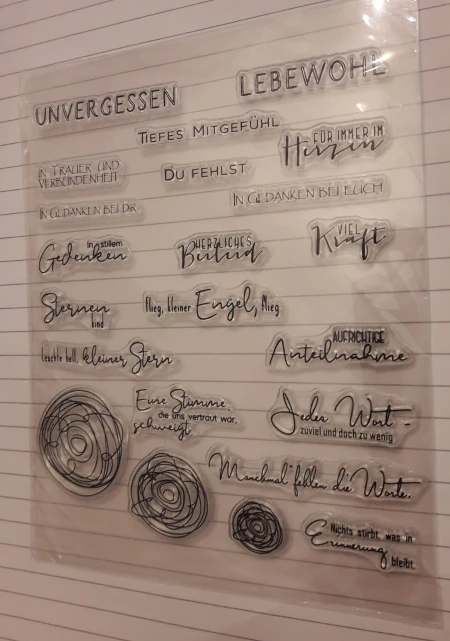 UNVERGESSEN
LEBEWOHL
TIEFES MITGEFÜHL
FÜR IMMER IM
Herzen
IN TRAUER UND
VERBUNDENHEIT
DU FEHLST
IN GEDANKEN BEI EUCH
IN GEDANKEN BEI DIR
in stillem
Gedenken
HERZLICHES
Beileid
VIEL
Kraft
Sternen
kind
Flieg, kleiner Engel, flieg
Leuchte hell, kleiner Stern
AUFRICHTIGE
Anteilnahme
Eine Stimme,
die uns vertraut war,
schweigt.
Jedes Wort -
zuviel und doch zu wenig
Manchmal fehlen die Worte.
Nichts stirbt, was in
Erinnerung
bleibt.